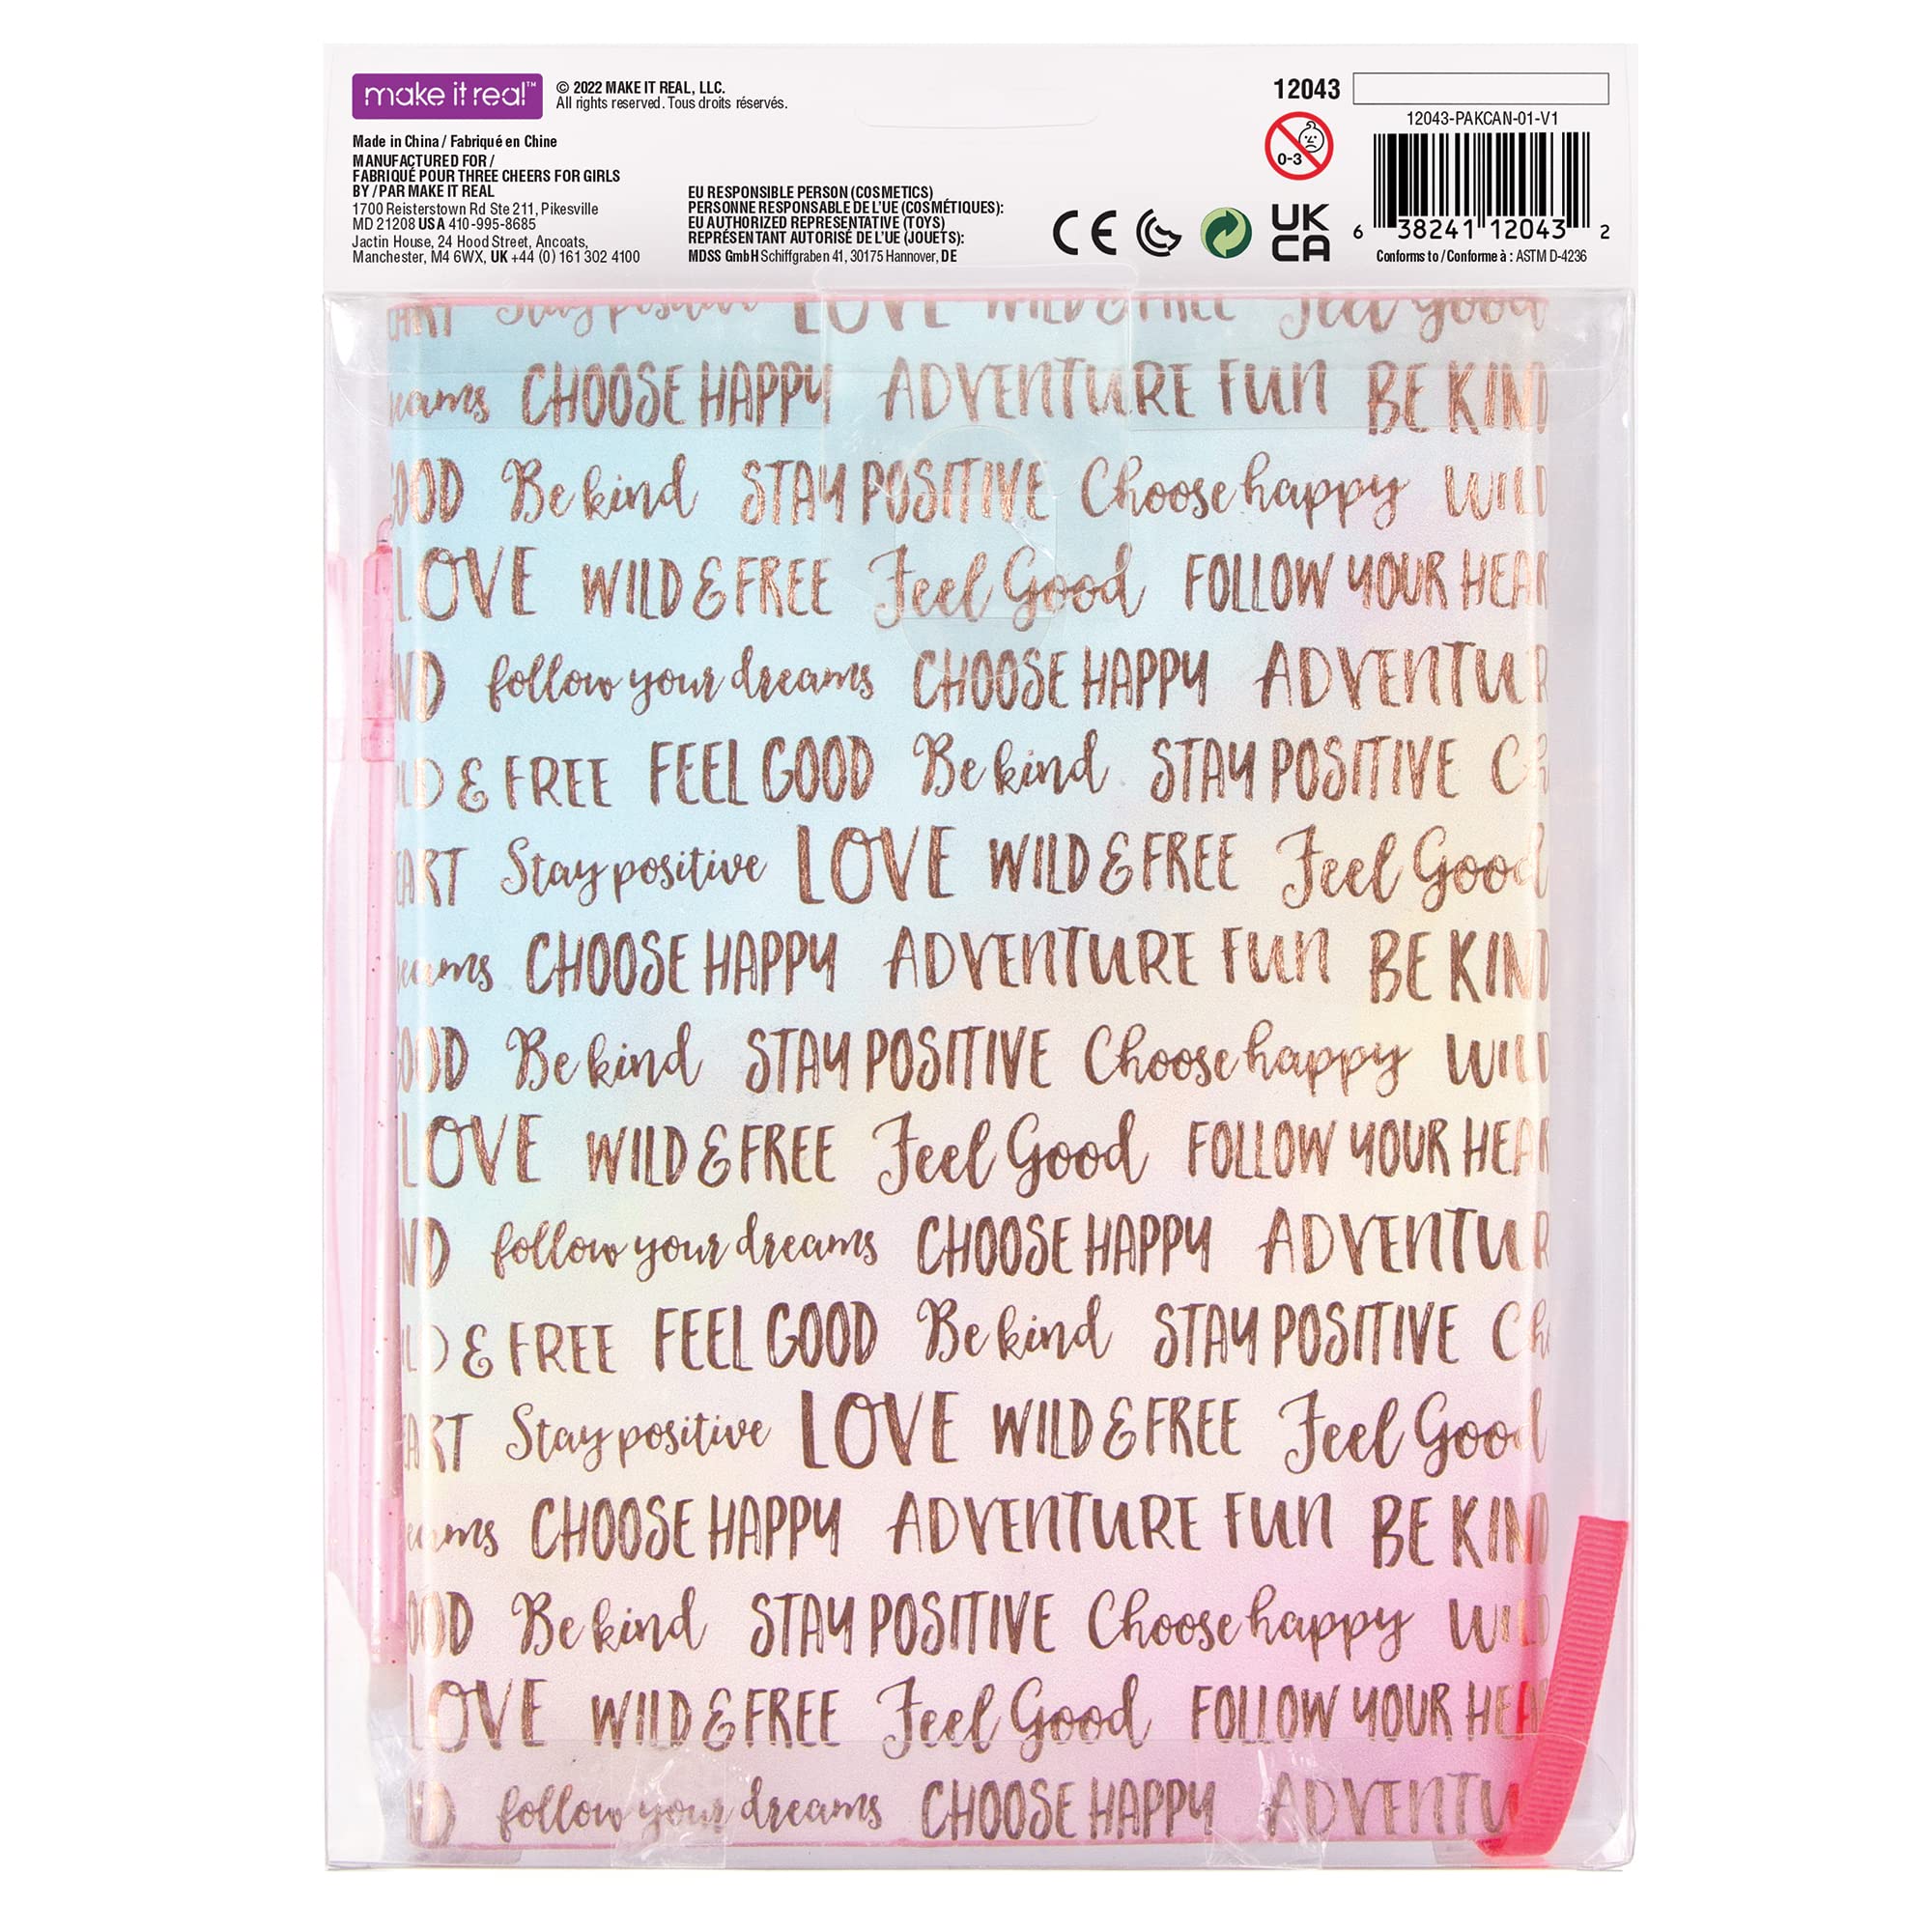 make it real™
© 2022 MAKE IT REAL, LLC.
All rights reserved. Tous droits réservés.
Made in China / Fabriqué en Chine
MANUFACTURED FOR /
FABRIQUÉ POUR THREE CHEERS FOR GIRLS
BY / PAR MAKE IT REAL
1700 Reisterstown Rd Ste 211, Pikesville
MD 21208 USA 410-995-8685
Jactin House, 24 Hood Street, Ancoats,
Manchester, M4 6WX, UK +44 (0) 161 302 4100
EU RESPONSIBLE PERSON (COSMETICS)
PERSONNE RESPONSABLE DE L'UE (COSMÉTIQUES):
EU AUTHORIZED REPRESENTATIVE (TOYS)
REPRÉSENTANT AUTORISÉ DE L'UE (JOUETS):
MDSS GmbH Schiffgraben 41, 30175 Hannover, DE
CE
UK
CA
12043
0-3
12043-PAKCAN-01-V1
6 38241 12043 2
Conforms to / Conforme à : ASTM D-4236
ART Stay positive LOVE WILD & FREE Feel Good
eams CHOOSE HAPPY ADVENTURE FUN BE KIND
OOD Be kind STAY POSITIVE Choose happy WILD
LOVE WILD & FREE Feel Good FOLLOW YOUR HEAR
ND follow your dreams CHOOSE HAPPY ADVENTUR
LD & FREE FEEL GOOD Be kind STAY POSITIVE Ch
EART Stay positive LOVE WILD & FREE Feel Good
eams CHOOSE HAPPY ADVENTURE FUN BE KIND
OOD Be kind STAY POSITIVE Choose happy WILD
LOVE WILD & FREE Feel Good FOLLOW YOUR HEAR
ND follow your dreams CHOOSE HAPPY ADVENTUR
ILD & FREE FEEL GOOD Be kind STAY POSITIVE Cho
EART Stay positive LOVE WILD & FREE Feel Good
eams CHOOSE HAPPY ADVENTURE FUN BE KIND
OOD Be kind STAY POSITIVE Choose happy WILD
LOVE WILD & FREE Feel Good FOLLOW YOUR HEA
ND follow your dreams CHOOSE HAPPY ADVENTU